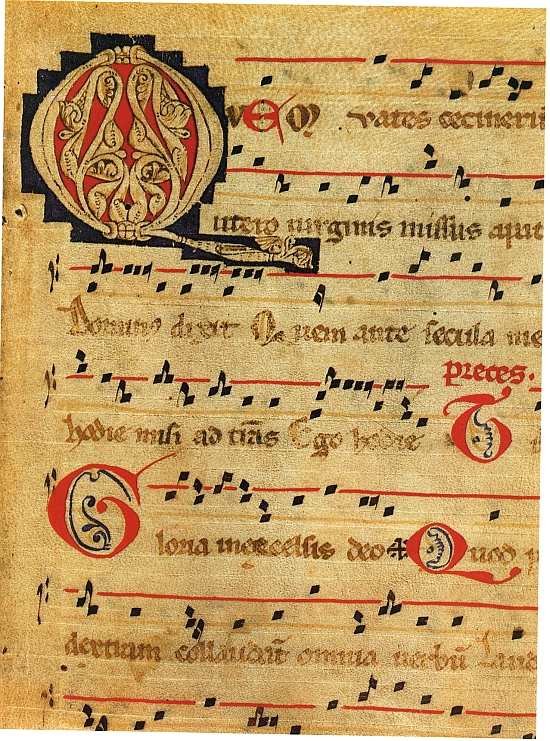 QUEM vates cecineru
utero virginis missus a
Dominus dixit Quem ante secula
hodie misi ad t̄ras Ego hodie
preces.
Gloria in excelsis deo Quod
dextrum collaudat omnia verbū